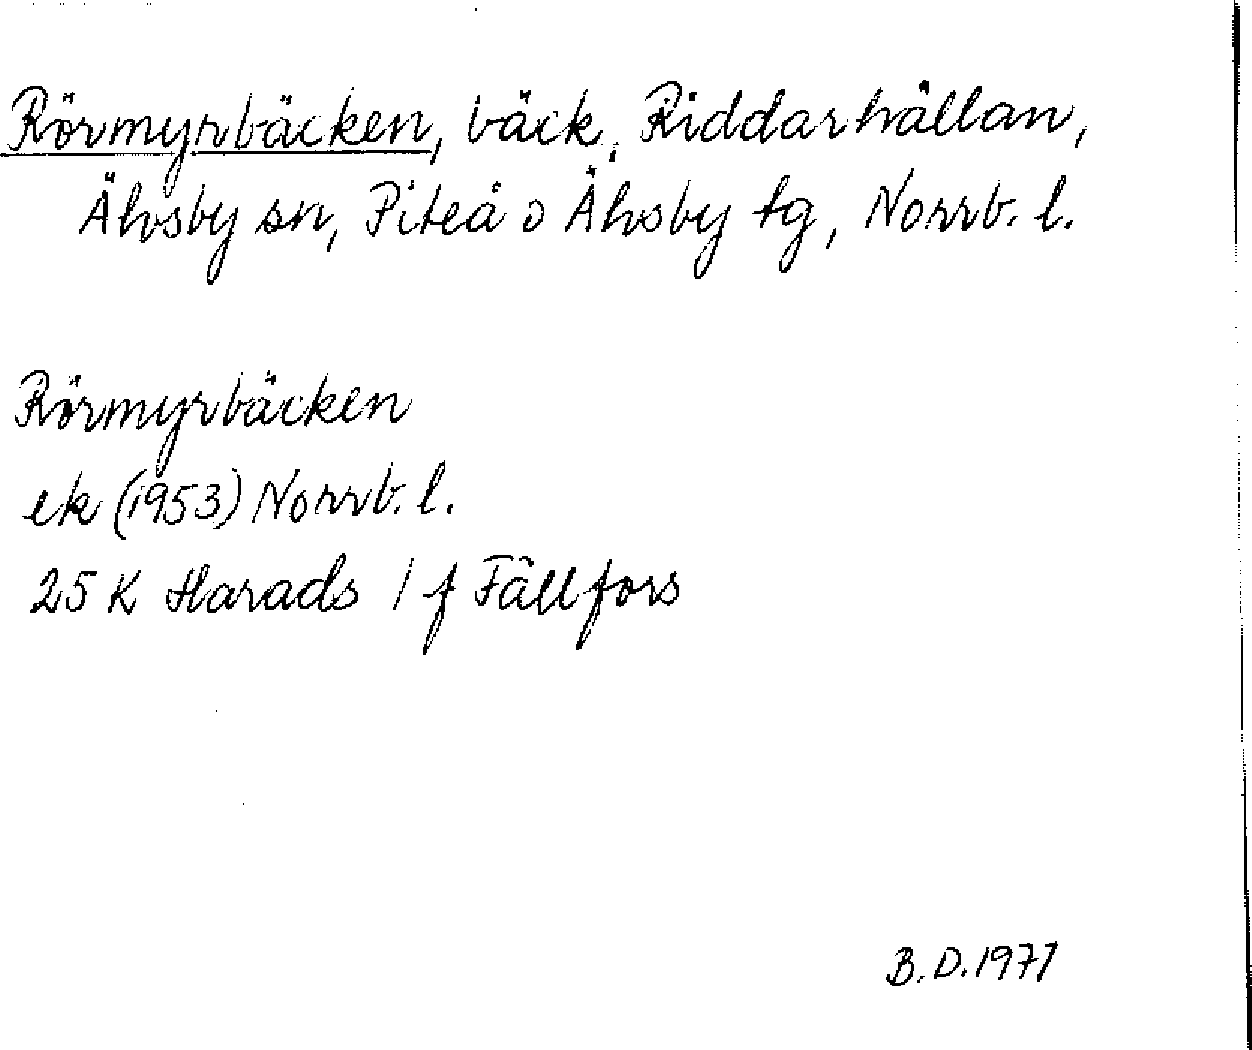 Rörmyrbäcken, bäck, Riddarhällan,
Älvsby sn, Piteå o Älvsby tg, Norrb. l.
Rörmyrbäcken
ek (1953) Norrb. l.
25 K Harads / f Fällfors
B.D. 1971